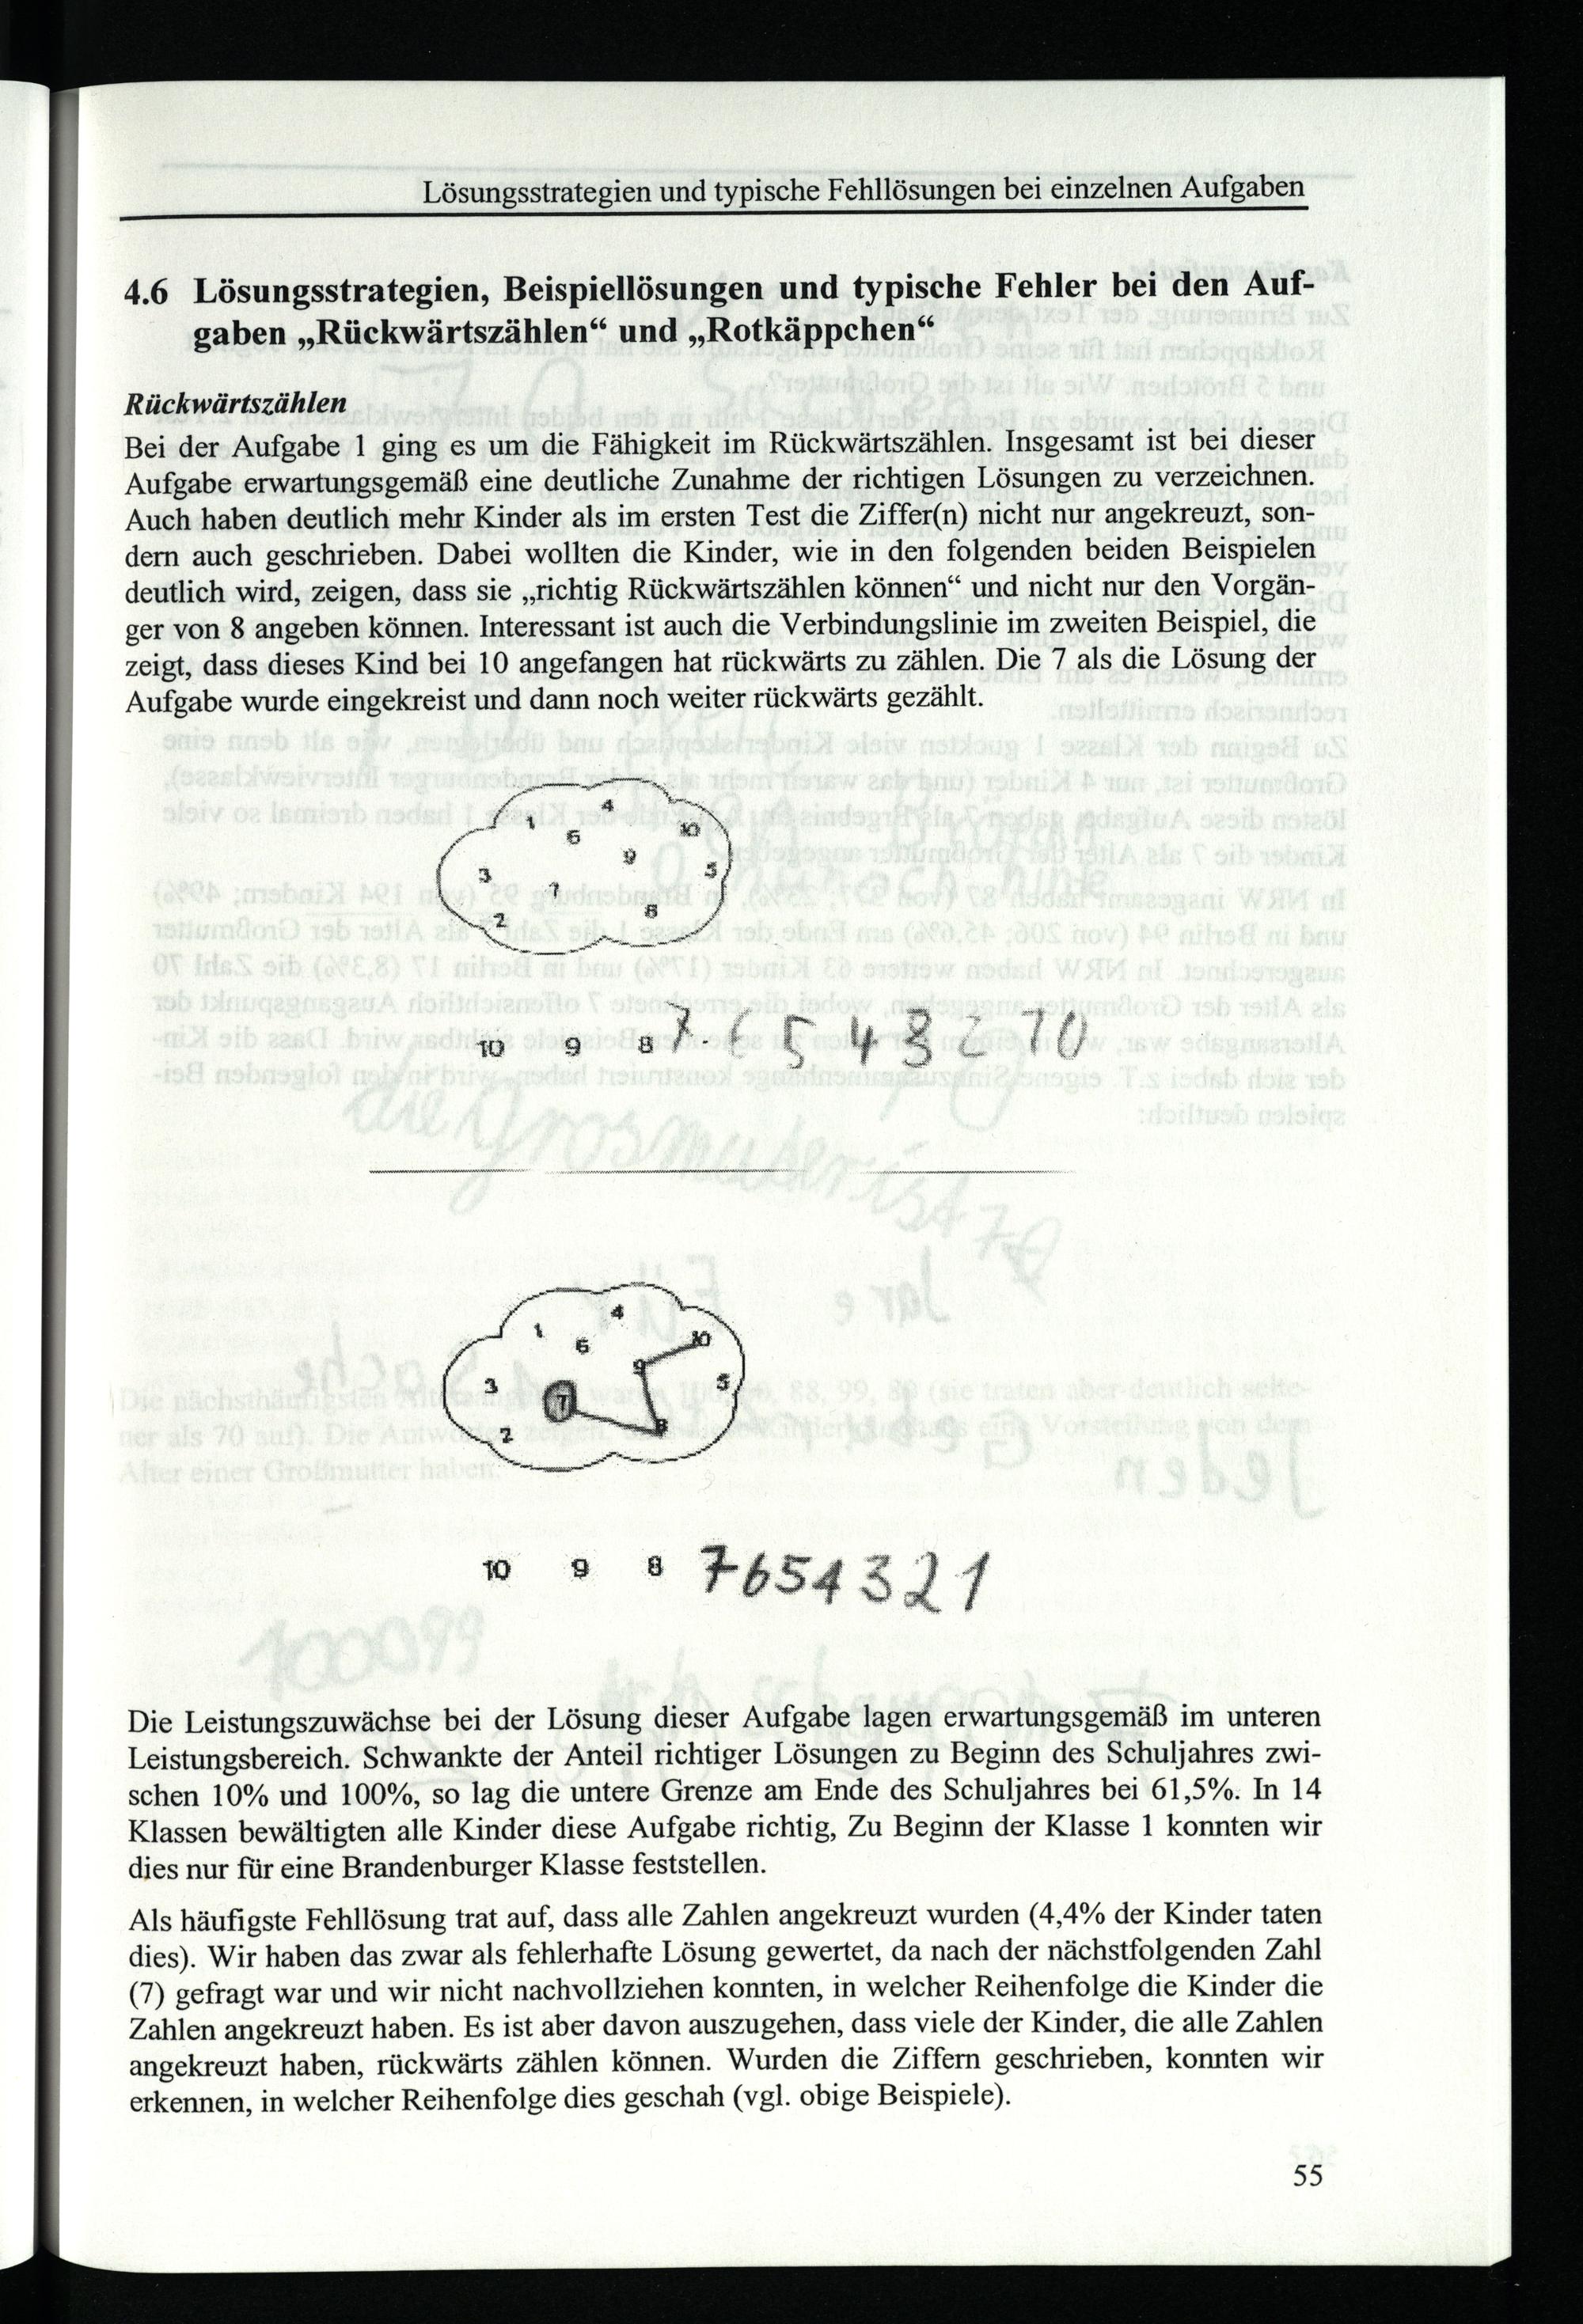 Lösungsstrategien und typische Fehllösungen bei einzelnen Aufgaben
4.6 Lösungsstrategien, Beispiellösungen und typische Fehler bei den Auf-
gaben „Rückwärtszählen“ und „Rotkäppchen“
Rückwärtszählen
Bei der Aufgabe 1 ging es um die Fähigkeit im Rückwärtszählen. Insgesamt ist bei dieser
Aufgabe erwartungsgemäß eine deutliche Zunahme der richtigen Lösungen zu verzeichnen.
Auch haben deutlich mehr Kinder als im ersten Test die Ziffer(n) nicht nur angekreuzt, son-
dern auch geschrieben. Dabei wollten die Kinder, wie in den folgenden beiden Beispielen
deutlich wird, zeigen, dass sie „richtig Rückwärtszählen können“ und nicht nur den Vorgän-
ger von 8 angeben können. Interessant ist auch die Verbindungslinie im zweiten Beispiel, die
zeigt, dass dieses Kind bei 10 angefangen hat rückwärts zu zählen. Die 7 als die Lösung der
Aufgabe wurde eingekreist und dann noch weiter rückwärts gezählt.
4
1 6 10
9
3 7 5
2 8
10 9 8 7 6 5 4 3 2 1 0
4
1 6 10
9
3 7 5
2 8
10 9 8 7 6 5 4 3 2 1
Die Leistungszuwächse bei der Lösung dieser Aufgabe lagen erwartungsgemäß im unteren
Leistungsbereich. Schwankte der Anteil richtiger Lösungen zu Beginn des Schuljahres zwi-
schen 10% und 100%, so lag die untere Grenze am Ende des Schuljahres bei 61,5%. In 14
Klassen bewältigten alle Kinder diese Aufgabe richtig, Zu Beginn der Klasse 1 konnten wir
dies nur für eine Brandenburger Klasse feststellen.
Als häufigste Fehllösung trat auf, dass alle Zahlen angekreuzt wurden (4,4% der Kinder taten
dies). Wir haben das zwar als fehlerhafte Lösung gewertet, da nach der nächstfolgenden Zahl
(7) gefragt war und wir nicht nachvollziehen konnten, in welcher Reihenfolge die Kinder die
Zahlen angekreuzt haben. Es ist aber davon auszugehen, dass viele der Kinder, die alle Zahlen
angekreuzt haben, rückwärts zählen können. Wurden die Ziffern geschrieben, konnten wir
erkennen, in welcher Reihenfolge dies geschah (vgl. obige Beispiele).
55